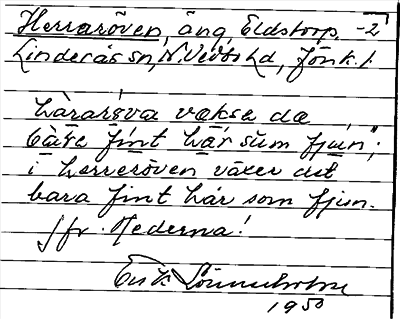 Herraröven, äng, Eldstorp. -2
Linderås sn, N. Vedbo hd, Jönk. l.
växsa dä
bara fint hår süm fjun";
i herreröven växer det
bara fint hår som fjun.
Jfr. Nederna!
Erik Lönnerholm
1950